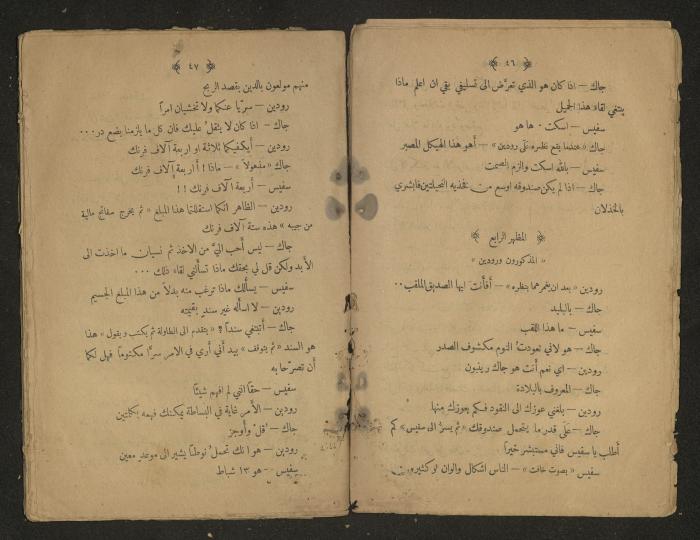 ﴿ ٤٦ ﴾
جاك — اذا كان هو الذي تعرَّض الى تسليفي بقي ان اعلم ماذا
يبتغي لقاء هذا الجميل
سفيس — اسكت . ها هو
جاك « عندما يقع نظره على رودين » — أهو هذا الهيكل المصبر
سفيس — بالله اسكت والزم الصمت
جاك — اذا لم يكن صندوقه اوسع من فخذيه النحيلتين فابشري
بالخذلان
﴿ المظهر الرابع ﴾
« المذكورون ورودين »
رودين « بعد ان يتمرهما بنظره » — أفأنت ايها الصديق الملقب . .
جاك — بالبليد
سفيس — ما هذا اللقب
جاك — هو لاني تعودتُ النوم مكشوف الصدر
رودين — اي نعم أنت هو جاك رينبون
جاك — المعروف بالبلادة
رودين — بلغني عوزك الى النقود فكم يعوزك منها
جاك — عَلَى قدر ما يتحمل صندوقك « ثم يسرُّ الى سفيس » كم
أطلب يا سفيس فاني مستبشر خيراً
سفيس « بصوت خافت » — الناس اشكال والوان وكثيرون
﴿ ٤٧ ﴾
منهم مولعون بالدين بقصد الربح
رودين — سرّيا عنكما ولا تخشيان امراً
جاك — اذا كان لا يثقلُ عليك فان كل ما يلزمنا بضع در . . .
رودين — أيكفيكما ثلاثة او اربعة آلاف فرنك
جاك « مذهولاً » — ماذا ! أأربعة آلاف فرنك
سفيس — أربعة آلاف فرنك ! !
رودين — الظاهر انكما استقللتما هذا المبلغ « ثم يخرج سفاتج مالية
من جيبه » هذه ستة آلاف فرنك
جاك — ليس أحب اليَّ من الاخذ ثم نسيان ما اخذت الى
الأبد ولكن قل لي بحقك ماذا تسألني لقاء ذلك . . .
سفيس — يسألك ماذا ترغب منه بدلاً من هذا المبلغ الجسيم
رودين — لا اسأله غير سندٍ بقيمته
جاك — أتبتغي سنداً ؟ « يتقدم الى الطاولة ثم يكتب ويقول » هذا
هو السند « ثم يتوقف » بيد أني أرى في الامر سرًّا مكتوماً فهل لكما
أن تصرّحا به
سفيس — حقًّا انني لم افهم شيئاً
رودين — الأمر غاية في البساطة يمكنك فهمه بكلمتين
جاك — قلْ وأوجز
رودين — هو انك تحملُ نوطاً يشير الى موعدٍ معين
سفيس — هو ١٣ شباط